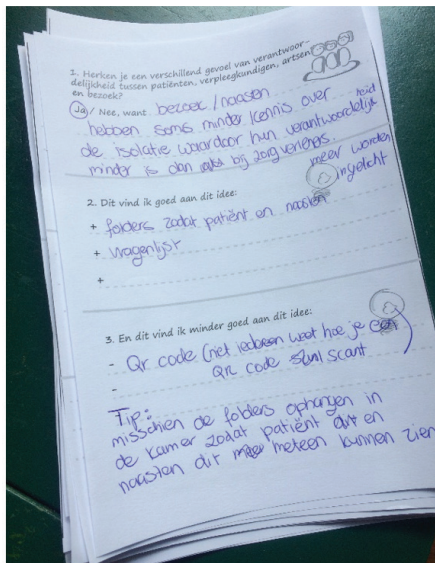 1. Herken je een verschillend gevoel van verantwoor-
delijkheid tussen patiënten, verpleegkundigen, artsen
en bezoek?
Ja / Nee, want bezoek/naasten
hebben soms minder kennis over
de isolatie waardoor hun verantwoordelijkheid
minder is dan bij zorgverleners.
2. Dit vind ik goed aan dit idee:
+ folders zodat patiënt en naasten meer worden ingelicht
+ vragenlijst
+
3. En dit vind ik minder goed aan dit idee:
- Qr code (niet iedereen weet hoe je een
- QR code scant
Tip:
misschien de folders ophangen in
de kamer zodat patiënt en
naasten dit meteen kunnen zien